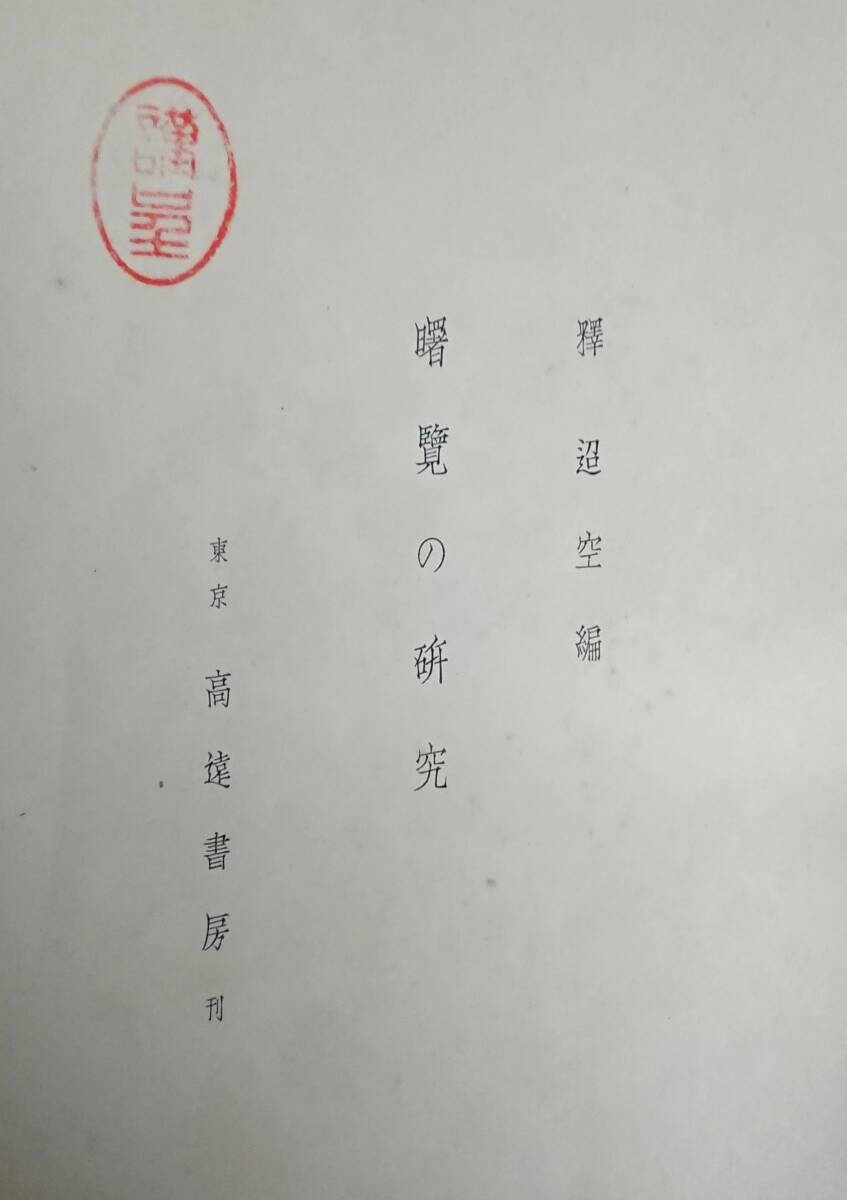 釋迢空編
曙覽の硏究
東京 高遠書房刊